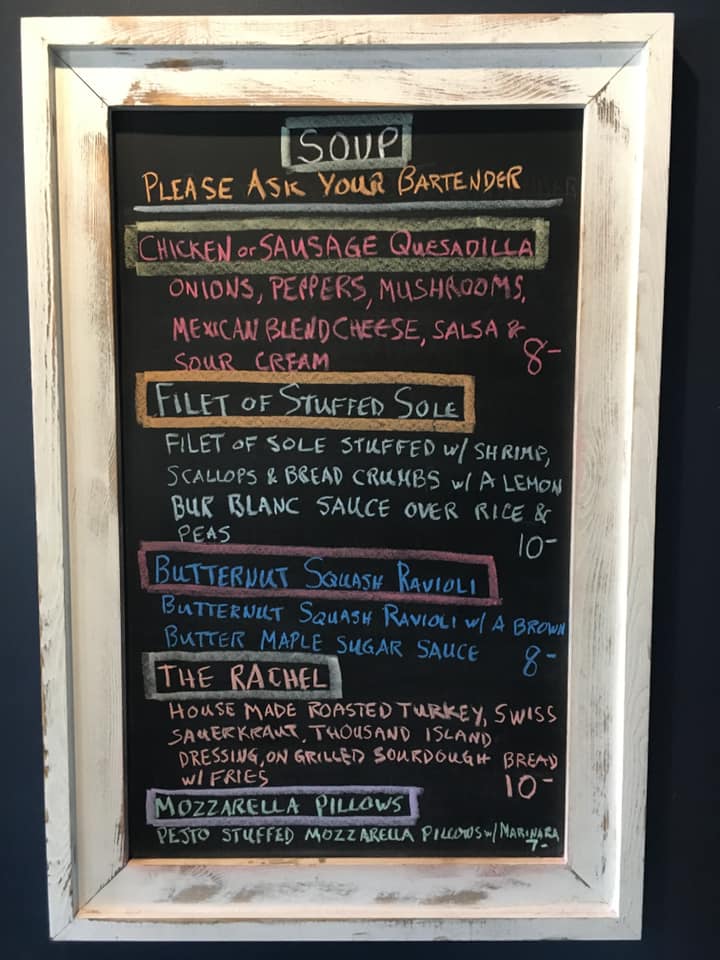 SOUP
PLEASE ASK YOUR BARTENDER
CHICKEN or SAUSAGE QUESADILLA
ONIONS, PEPPERS, MUSHROOMS,
MEXICAN BLEND CHEESE, SALSA &
SOUR CREAM 8-
FILET OF STUFFED SOLE
FILET OF SOLE STUFFED w/ SHRIMP,
SCALLOPS & BREAD CRUMBS w/ A LEMON
BUR BLANC SAUCE OVER RICE &
PEAS 10-
BUTTERNUT SQUASH RAVIOLI
BUTTERNUT SQUASH RAVIOLI w/ A BROWN
BUTTER MAPLE SUGAR SAUCE 8-
THE RACHEL
HOUSE MADE ROASTED TURKEY, SWISS
SAUERKRAUT, THOUSAND ISLAND
DRESSING, ON GRILLED SOURDOUGH BREAD
w/ FRIES 10-
MOZZARELLA PILLOWS
PESTO STUFFED MOZZARELLA PILLOWS w/ MARINARA
7-